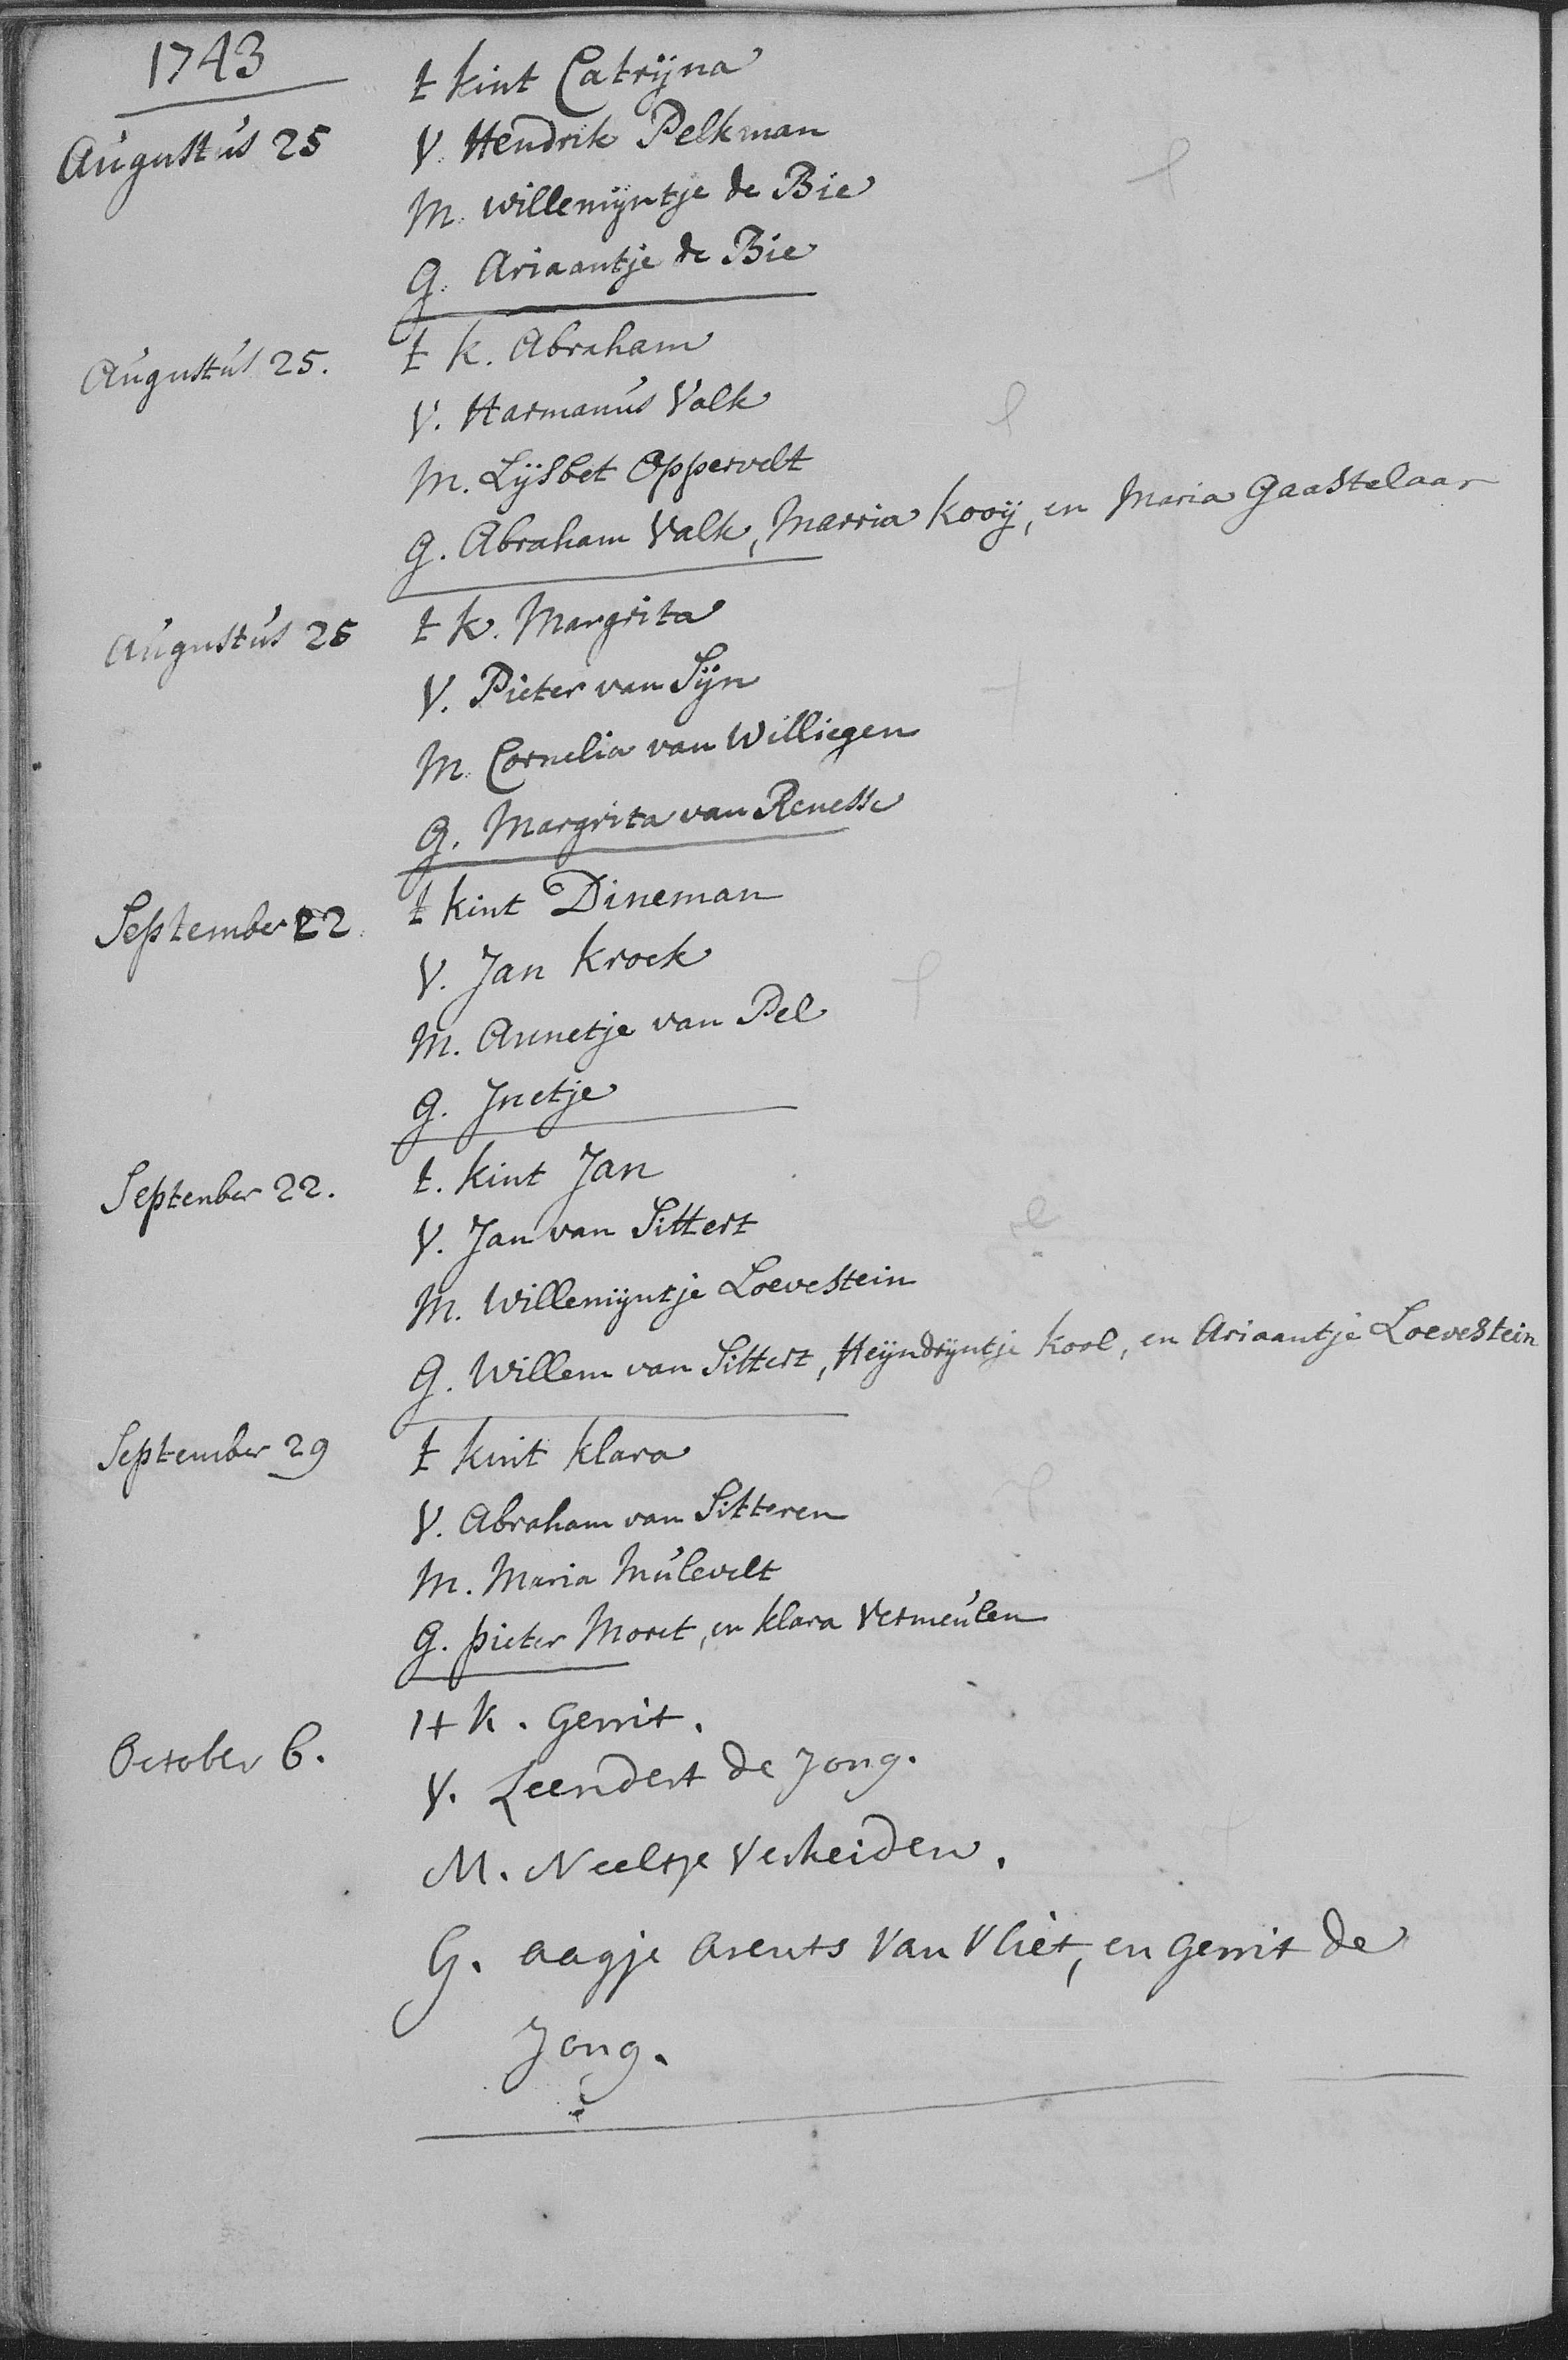 1743
t kint Catrijna
Augustus 25
V. Hendrik Pelkman
M. willemijntje de Bie
G. Ariaantje de Bie
Augustus 25.
t k. Abraham
V. Harmanus Valk
M. Lijsbet Oppervelt
G. Abraham Valk, Marria Kooij, en Maria Gaastelaar
Augustus 25
t k. Margrita
V. Pieter van Sijn
M. Cornelia van Williegen
G. Margrita van Renesse
September 22.
t kint Dineman
V. Jan Kroek
M. Annetje van Pel
G. Jnetje
September 22.
t. kint Jan
V. Jan van Sittert
M. Willemijntje Loevestein
G. Willem van Sittert, Heijndrijntje Kool, en Ariaantje Loevestein
September 29
t kint Klara
V. Abraham van Sitteren
M. Maria Mulevelt
G. pieter Moret, en Klara Vermeulen
October 6.
't K. Gerrit.
V. Leendert de Jong.
M. Neeltje Verheiden.
G. aagje Arents Van Vliet, en Gerrit de
Jong.